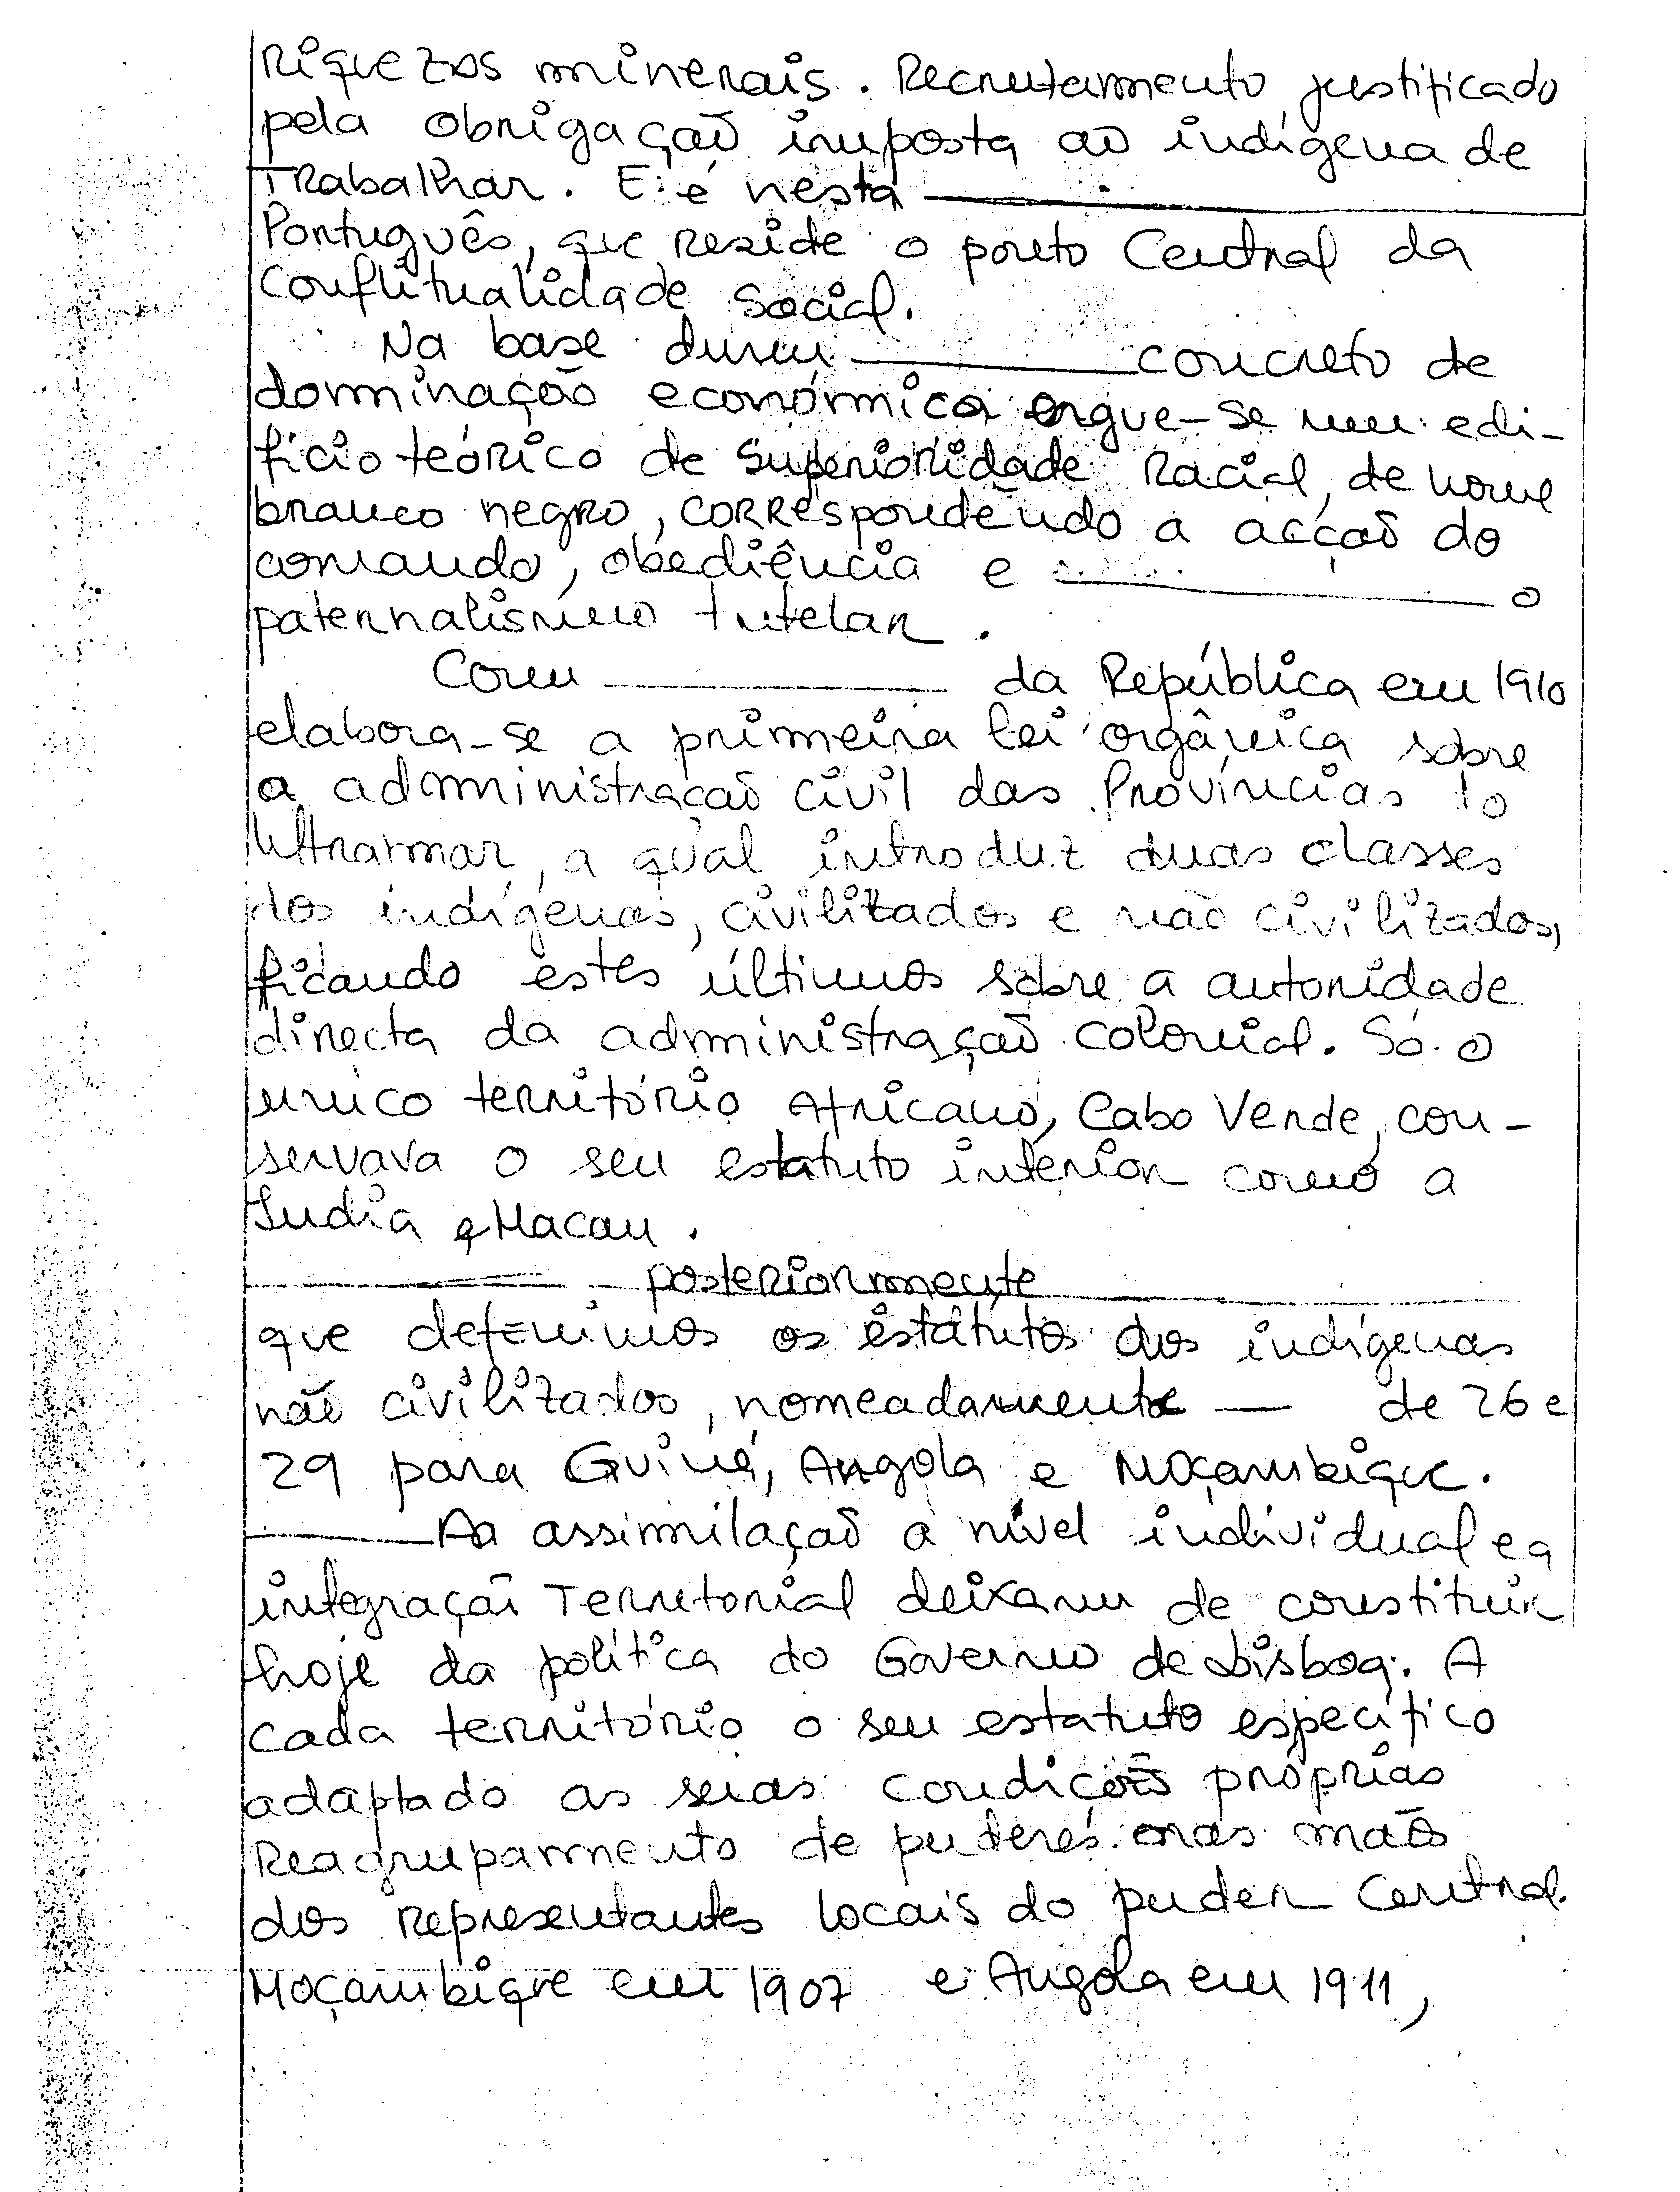 Riquezas minerais. Recrutamento justificado
pela obrigação imposta ao indígena de
Trabalhar. E é nesta ________
Português, que reside o ponto Central da
Conflitualidade Social.
Na base dum ________ concreto de
dominação económica ergue-se um edi-
fício teórico de Superioridade Racial, de nome
branco negro, correspondendo a acção do
comando, obediência e ________ o
paternalismo tutelar.
Com ________ da República em 1910
elabora-se a primeira lei orgânica sobre
a administração civil das Províncias do
Ultramar, a qual introduz duas classes
dos indígenas, civilizados e não civilizados,
ficando estes últimos sobre a autoridade
directa da administração colonial. Só o
unico território Africano, Cabo Verde, con-
servava o seu estatuto interior como a
India e Macau.
________ posteriormente ________
que definimos os estatutos dos indígenas
não civilizados, nomeadamente — de 26 e
29 para Guiné, Angola e Moçambique.
________ Aa assimilação a nível individual e a
integração Territorial deixaram de constituir
hoje da política do Governo de Lisboa. A
cada território o seu estatuto específico
adaptado as suas condições próprias
Reagrupamento de puderes nas mãos
dos representantes locais do puder Central.
Moçambique em 1907 e Angola em 1911,